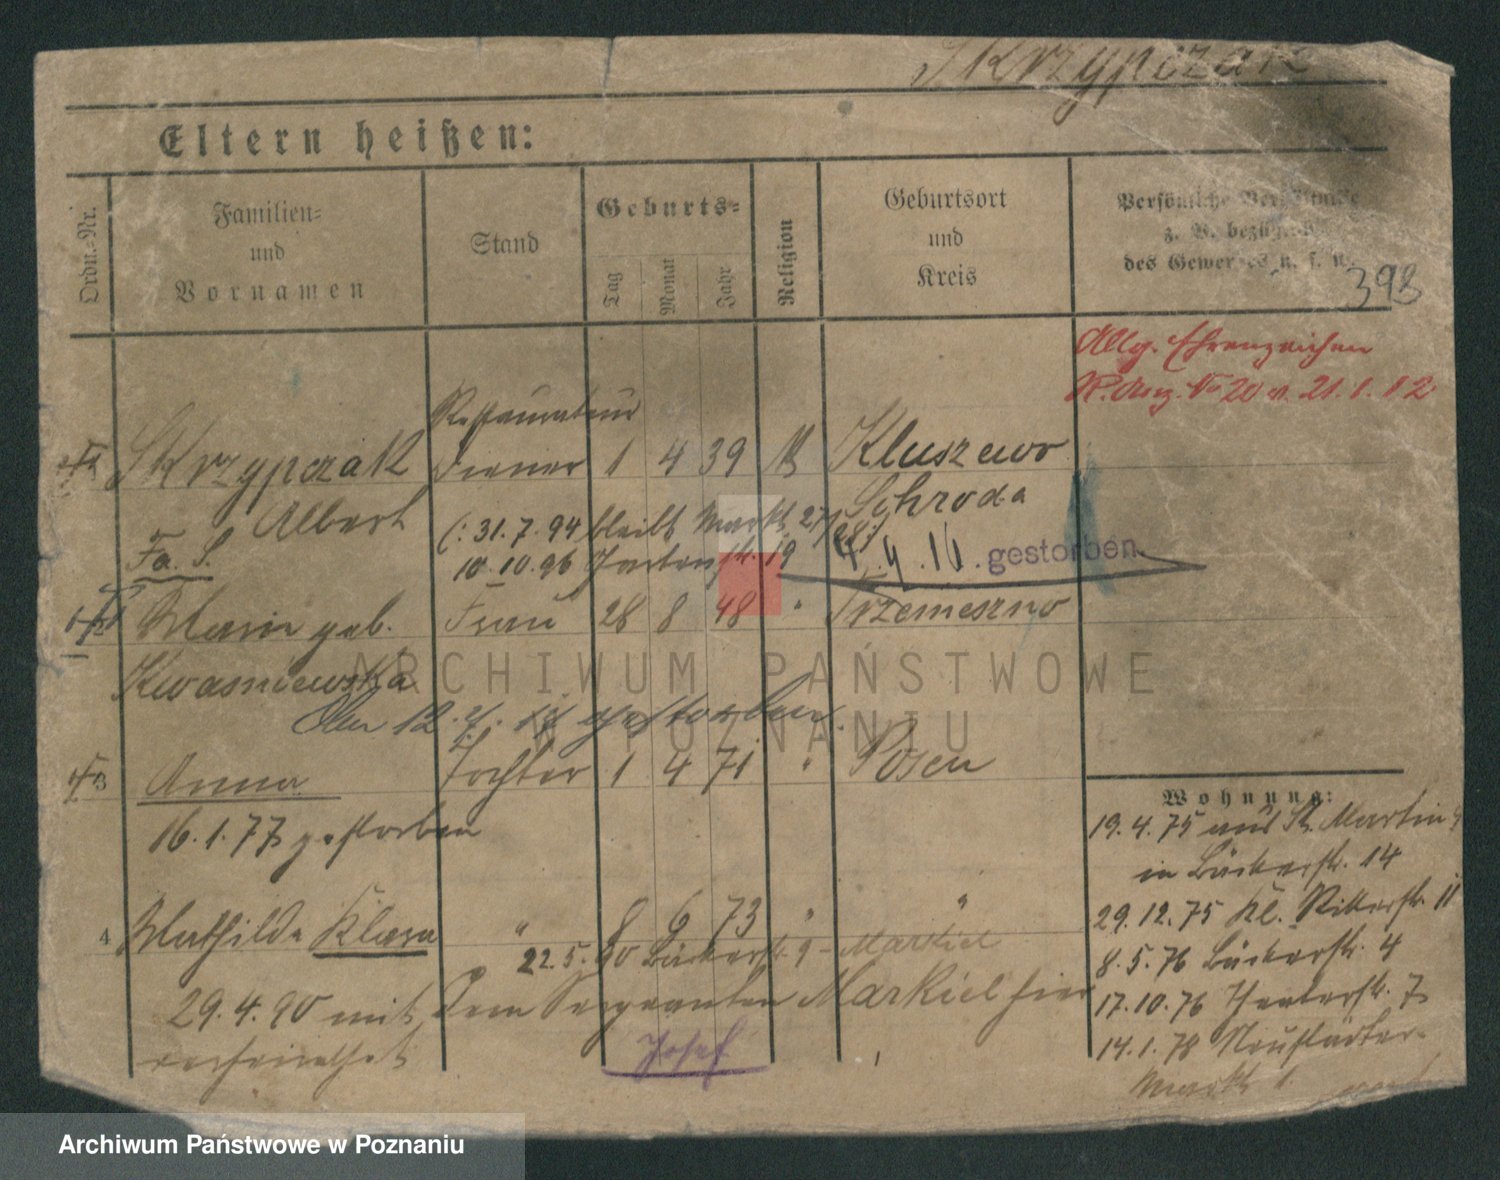 Skrzypczak
Eltern heißen:
Ordn.-Nr.
Familien-
und
Vornamen
Stand
Geburts-
Tag
Monat
Jahr
Religion
Geburtsort
und
Kreis
Persönliche Verhältnisse
z. B. bezügl.
des Gewerbes u. s. w.
398
Allg. Ehrenzeichen
No 20 v. 21.1.12
Restaurateur
Skrzypczak Diener 1 4 39 Kluszewo
Albert Schroda
(: 31.7.94 bleibt Markt 27/28 :)
Fa. S.
10.10.96 Gartenstr. 19
4.9.16. gestorben.
Maria geb. Frau 28 8 48 " Trzemeszno
Kwasniewska
gestorben.
3 Anna Tochter 1 4 71 " Posen
16.1.77 gestorben
4 Mathilde Klara " 8 6 73 " "
22.5.90 Bäckerstr. 9 - Markiel
29.4.90 mit dem Sergeanten Markiel hier
verheirathet
Josef
Wohnung:
19.4.75 aus St. Martin
in Bäckerstr. 14
29.12.75 Kl. Ritterstr. 11
8.5.76 Bäckerstr. 4
17.10.76 Theaterstr. 7
14.1.78 Neustädter-
Markt 1.
ARCHIWUM PAŃSTWOWE
W POZNANIU
Archiwum Państwowe w Poznaniu